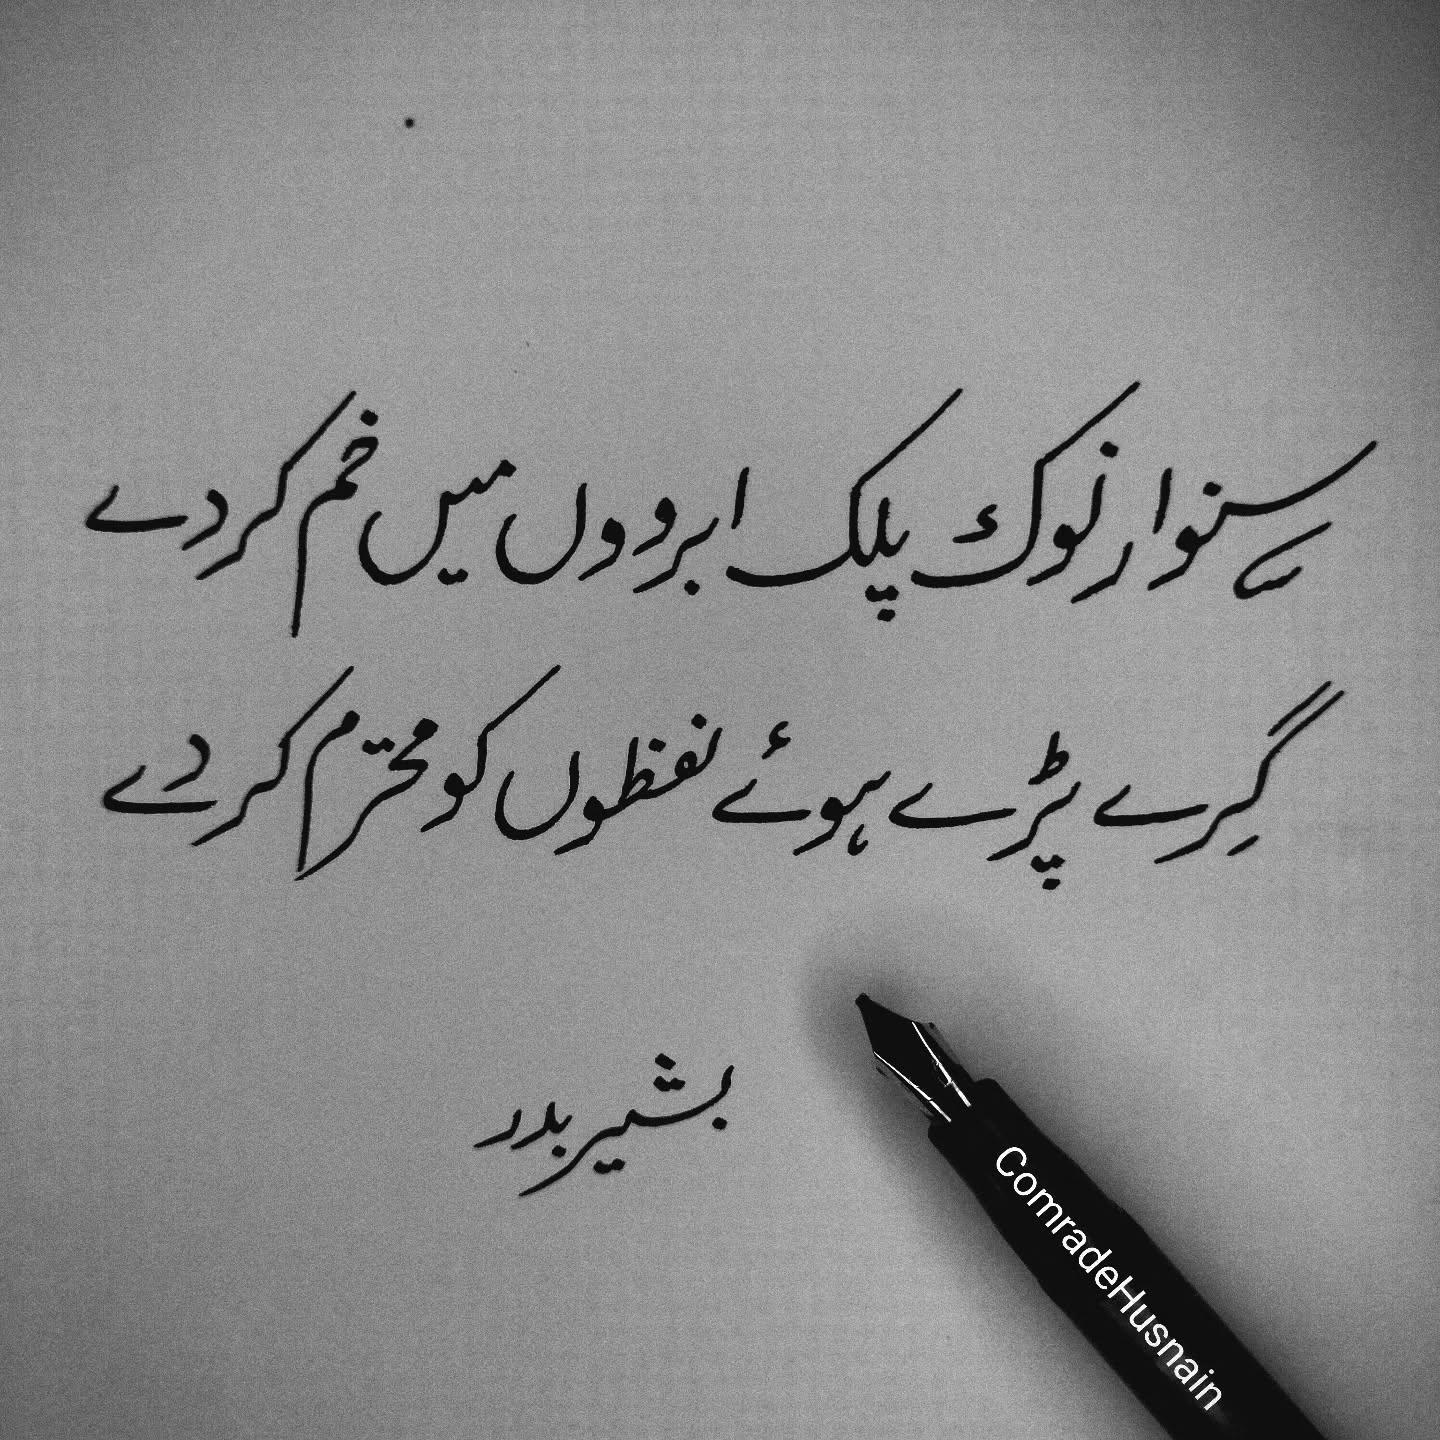 سنوار نوک پلک ابرووں میں خم کردے
گِرے پڑے ہوئے لفظوں کو محترم کردے
بشیر بدر
ComradeHusnain